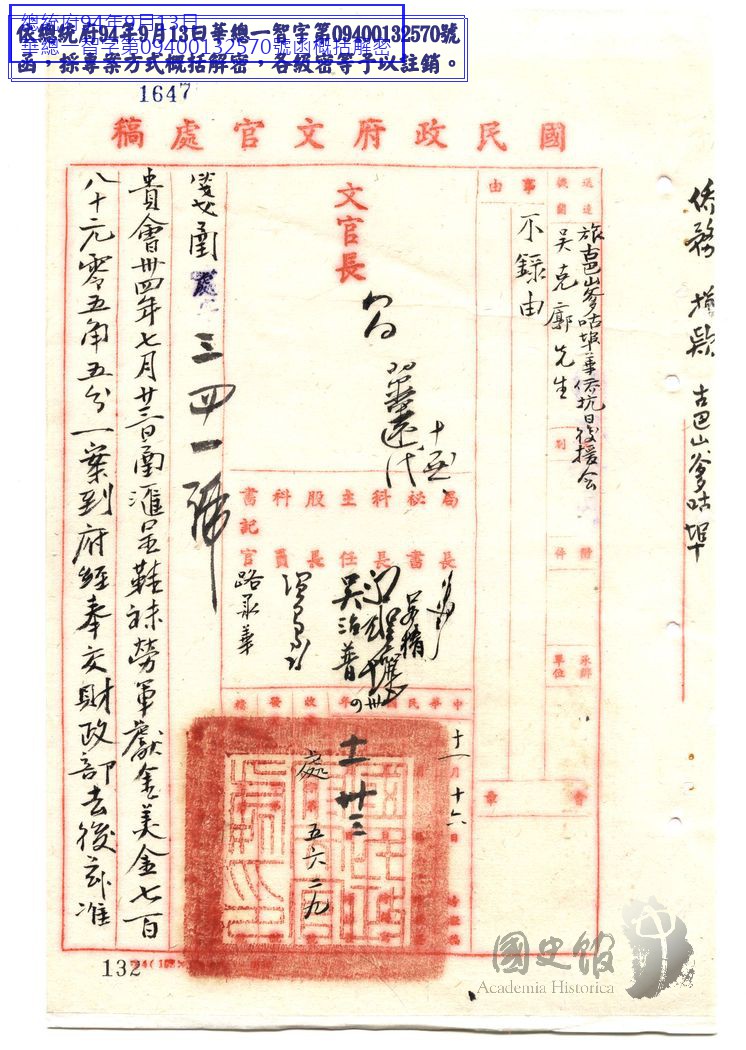 總統府94年9月13日
華總一智字第09400132570號函概括解密
依總統府94年9月13日華總一智字第09400132570號
函，採專案方式概括解密，各級密等予以註銷。
1647
僑務 增款 古巴山爹咕埠
國民政府文官處稿
送達機關
旅古巴山爹咕埠華僑抗日後援会
吳克廓先生
別
附件
承辦單位
事由
不錄由
會章
文官長
局長
秘書
科長
主任
股長
科員
書記官
吳治普
路永華
中華民國
年
收發
檔
卅
十一月十六日
十一 卅三
處
五六二九
箋函
處
三四一號
貴會卅四年七月廿三日函匯呈鞋襪勞軍獻金美金七百
八十元零五角五分一案到府經奉交財政部去後茲准
132
國史館
Academia Historica